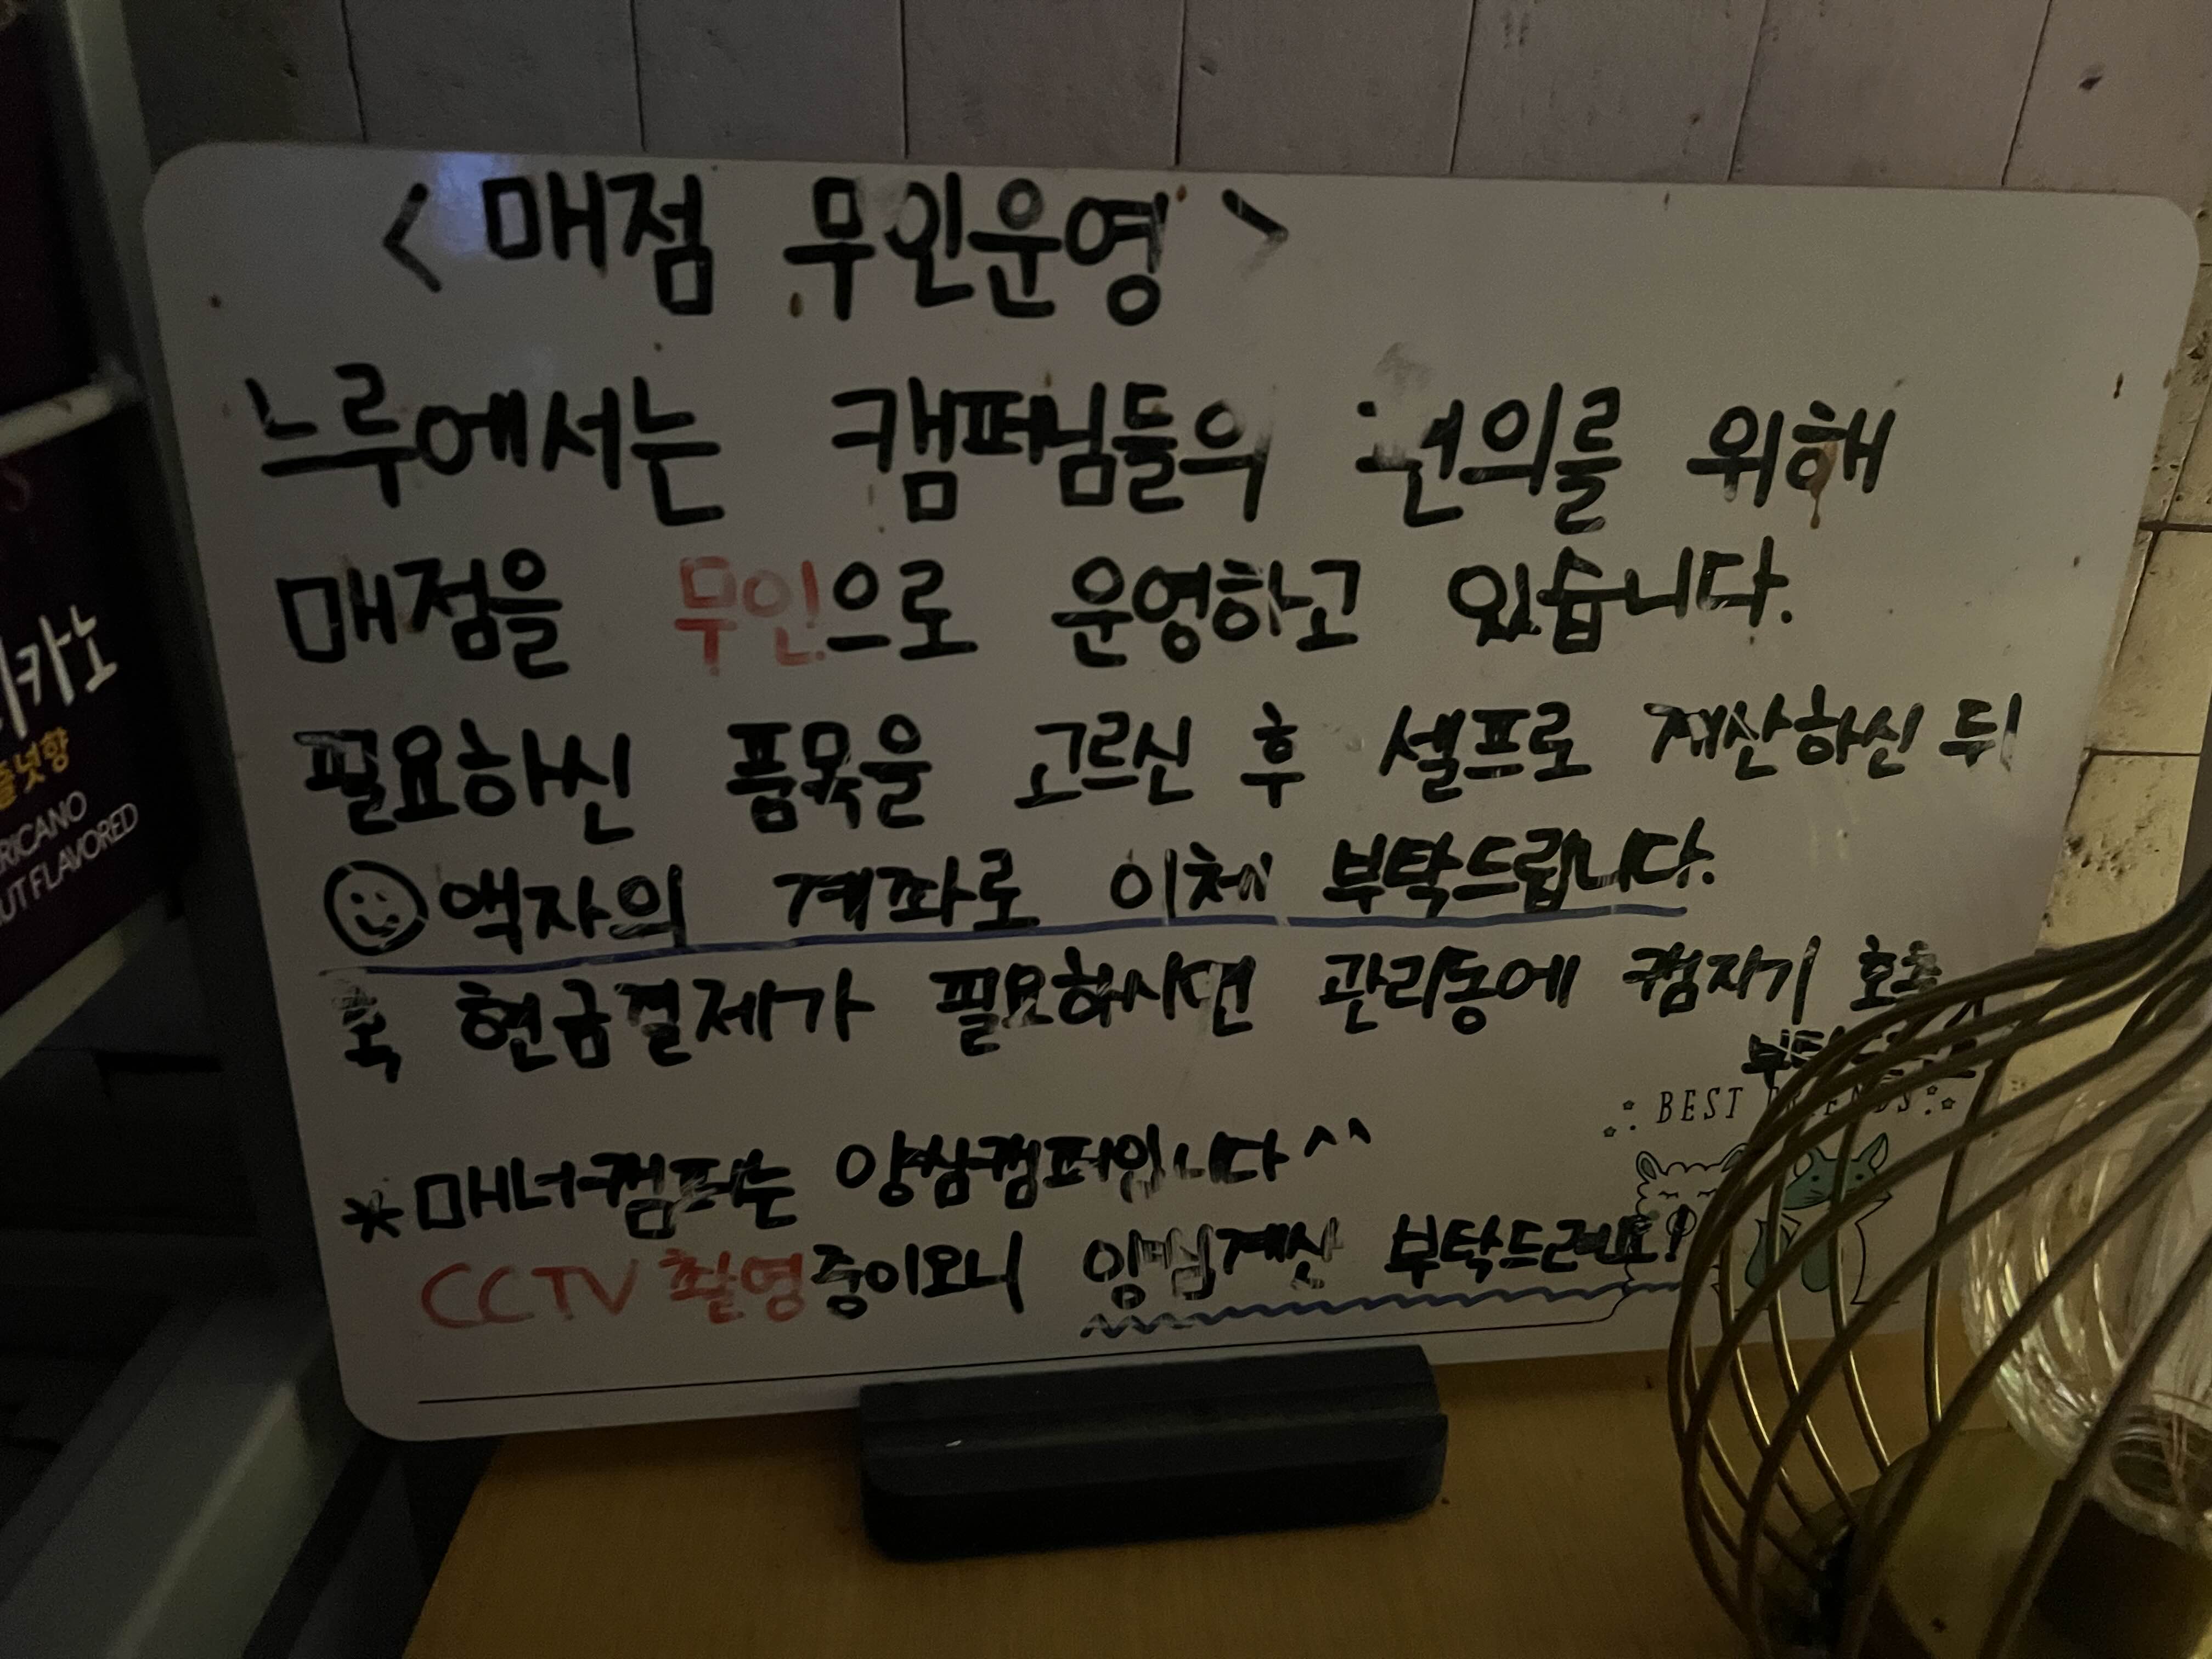 < 매점 무인운영 >
느루에서는 캠퍼님들의 편의를 위해
매점을 무인으로 운영하고 있습니다.
필요하신 품목을 고르신 후 셀프로 계산하신 뒤
액자의 계좌로 이체 부탁드립니다.
혹 현금결제가 필요하시면 관리동에 캠지기 호출
BEST FRIENDS
*매너캠퍼는 양심캠퍼입니다^^
CCTV 촬영중이오니 양심계산 부탁드려요!
카노
즐넛향
RICANO
UT FLAVORED